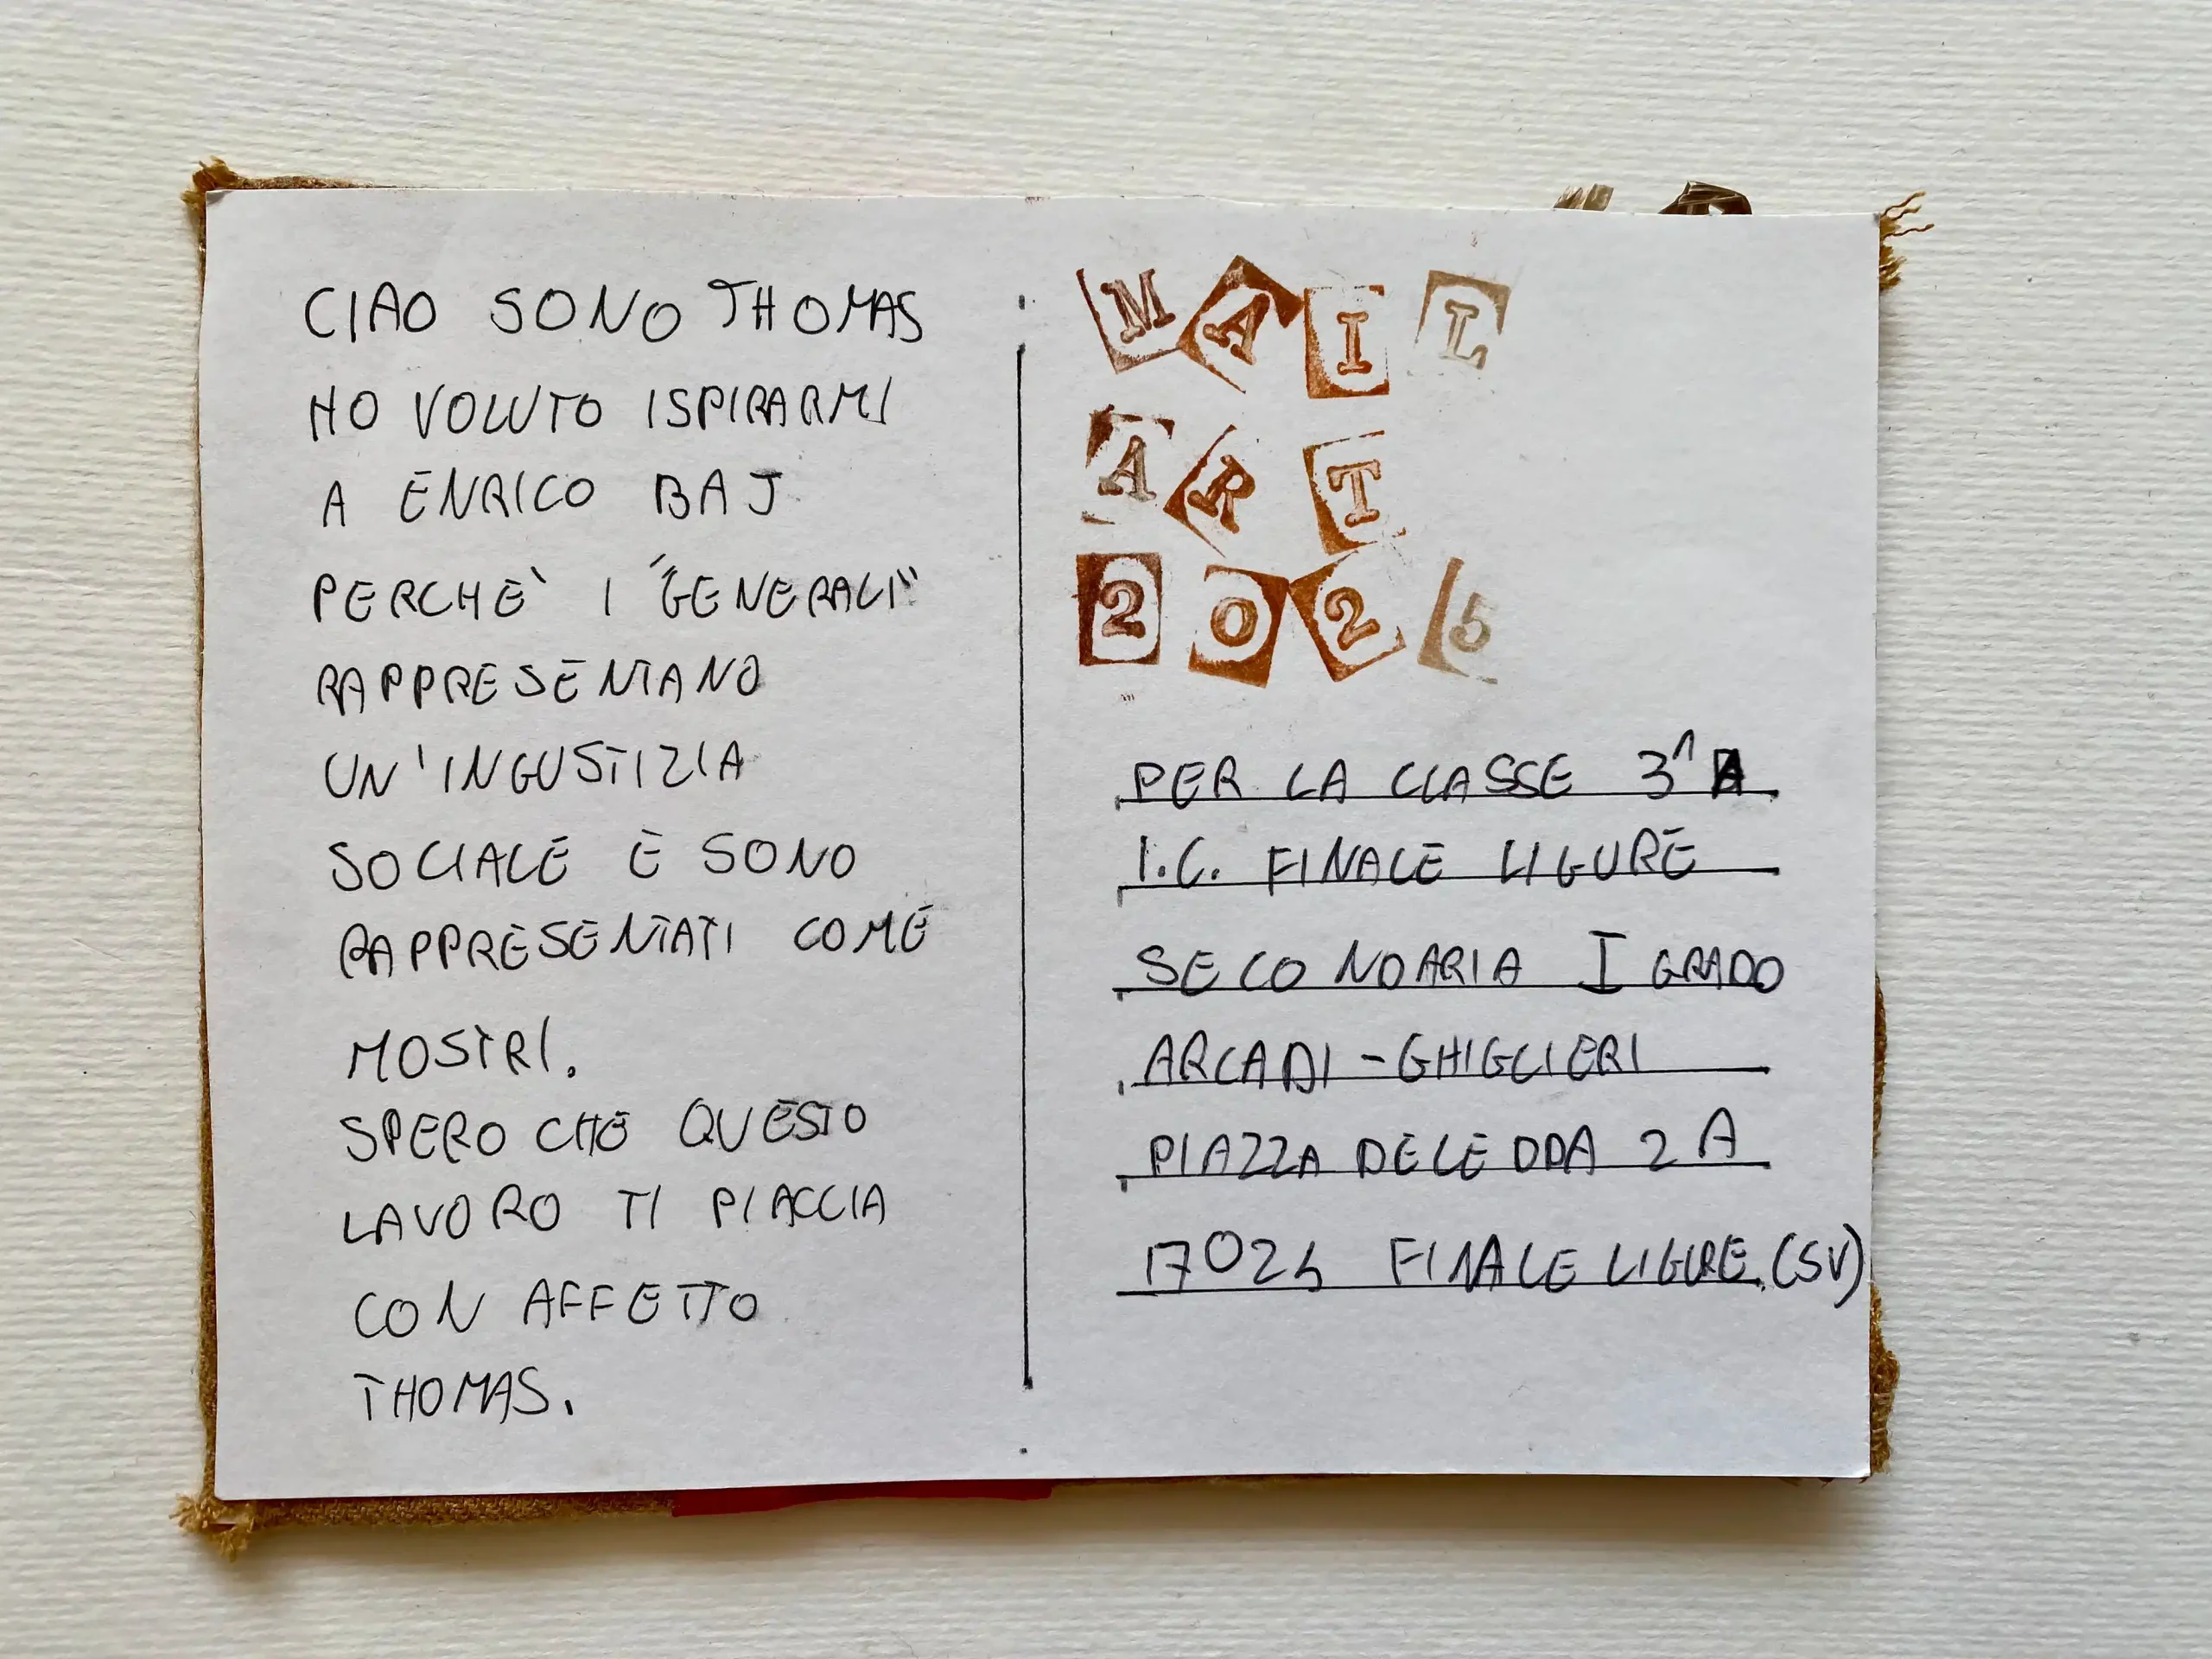 CIAO SONO THOMAS
HO VOLUTO ISPIRARMI
A ENRICO BAJ
PERCHE` I "GENERALI"
RAPPRESENTANO
UN'INGUSTIZIA
SOCIALE E SONO
RAPPRESENTATI COME
MOSTRI.
SPERO CHE QUESTO
LAVORO TI PIACCIA
CON AFFETTO
THOMAS.
MAIL
ART
2025
PER LA CLASSE 3^A
I.C. FINALE LIGURE
SECONDARIA I GRADO
ARCADI-GHIGLIERI
PIAZZA DELEDDA 2A
17024 FINALE LIGURE (SV)